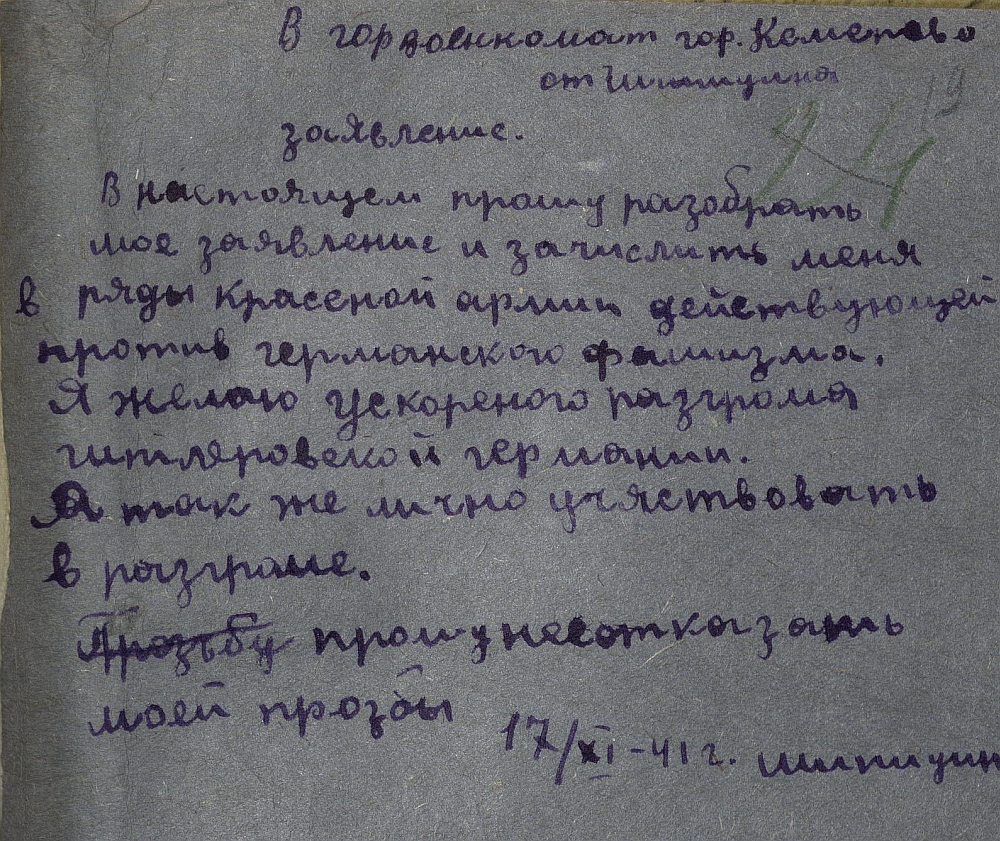 В горвоенкомат гор. Кемерово
от
19
заявление.
В настоящем прошу разобрать
мое заявление и зачислить меня
в ряды красеной армии действующей
против германского фашизма.
Я желаю ускореного разгрома
гитляровской германии.
А так же лично учяствовать
в разгроме.
Прозьбу прошу неотказать
моей прозбы
17/XI-41 г.